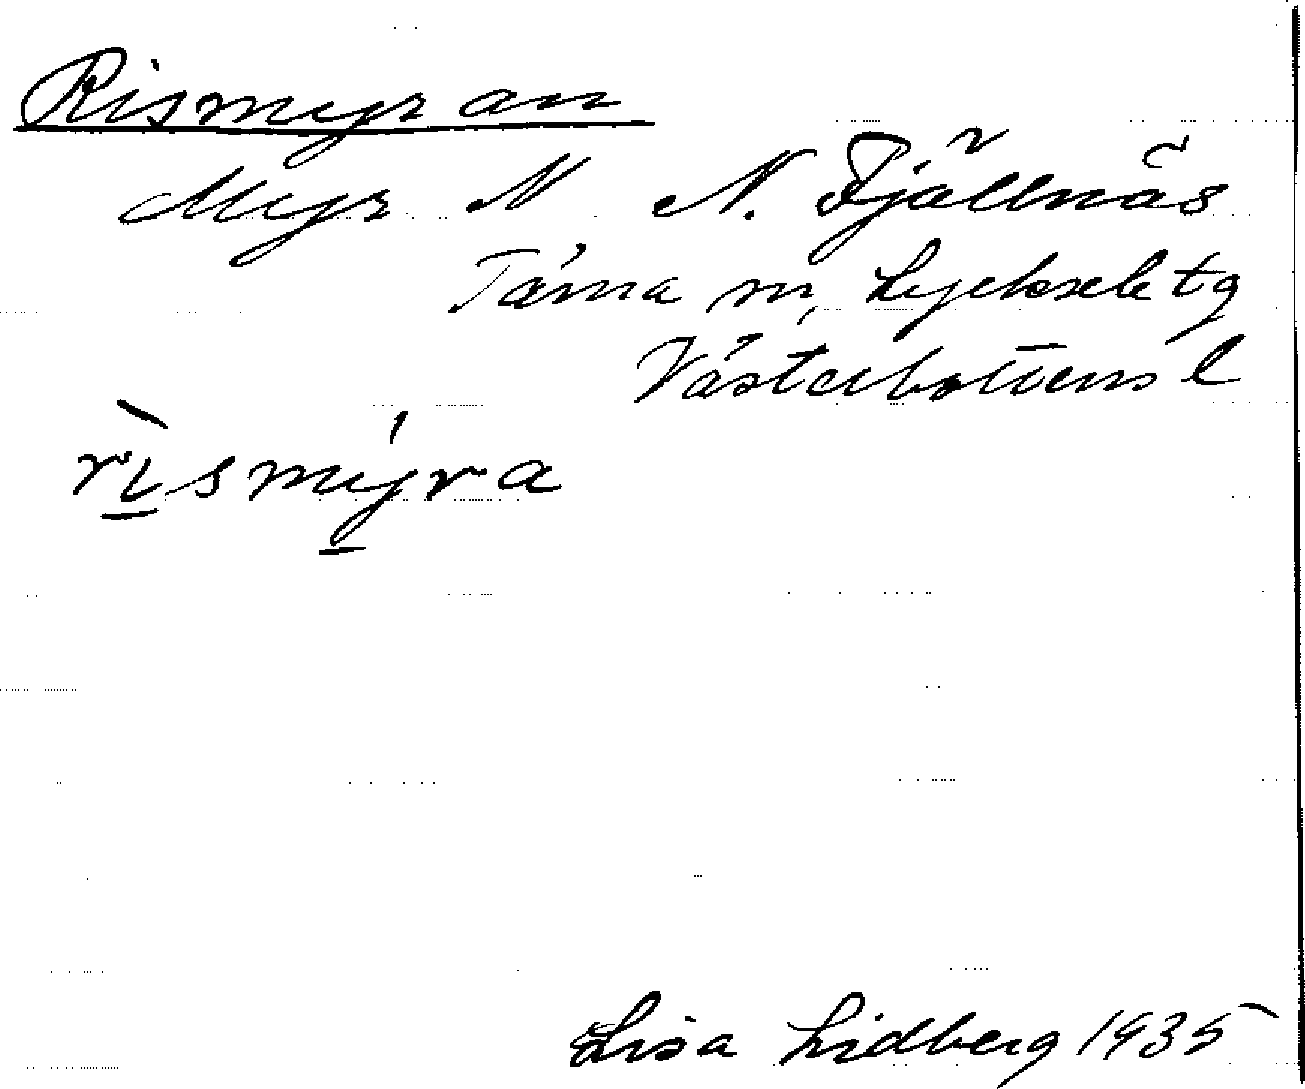 Rismyran
Myr N N. Fjällnäs
Tärna sn, Lycksele tg
Västerbottens l
rìsmýra
Lisa Lidberg 1935